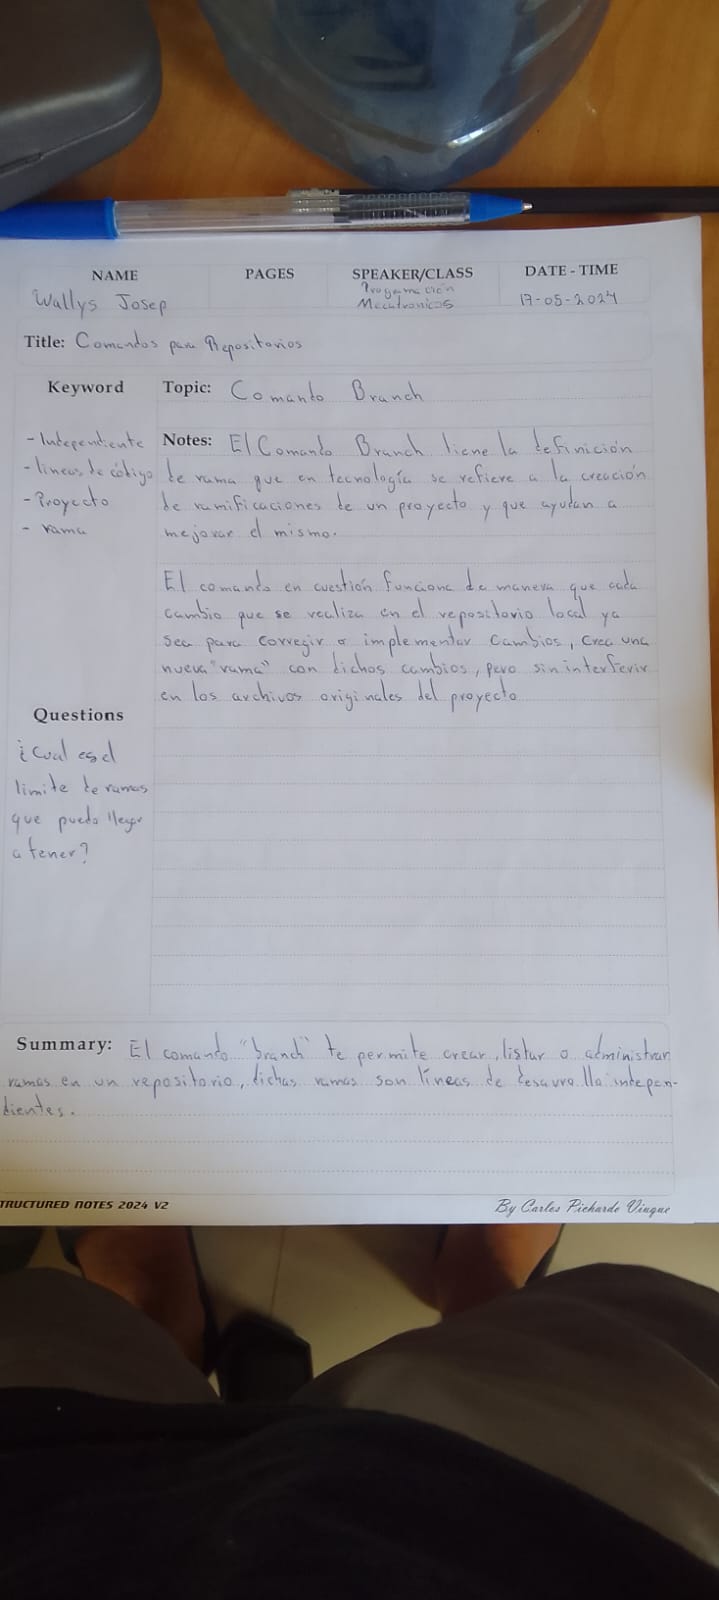 NAME PAGES SPEAKER/CLASS DATE - TIME
Wallys Josep Programación Mecatronicos 17-05-2024
Title: Comandos para Repositorios
Keyword
- Independiente
- lineas de código
- Proyecto
- rama
Topic: Comando Branch
Notes: El Comando Branch tiene la definición
de rama que en tecnología se refiere a la creación
de ramificaciones de un proyecto y que ayudan a
mejorar el mismo.
El comando en cuestión funciona de manera que cada
cambio que se realiza en el repositorio local ya
sea para corregir o implementar cambios, crea una
nueva "rama" con dichos cambios, pero sin interferir
en los archivos originales del proyecto
Questions
¿Cual es el
limite de ramas
que puedo llegar
a tener?
Summary: El comando "branch" te permite crear, listar o administrar
ramas en un repositorio, dichas ramas son líneas de desarrollo indepen-
dientes.
TRUCTURED NOTES 2024 V2
By Carlos Pichardo Vinque